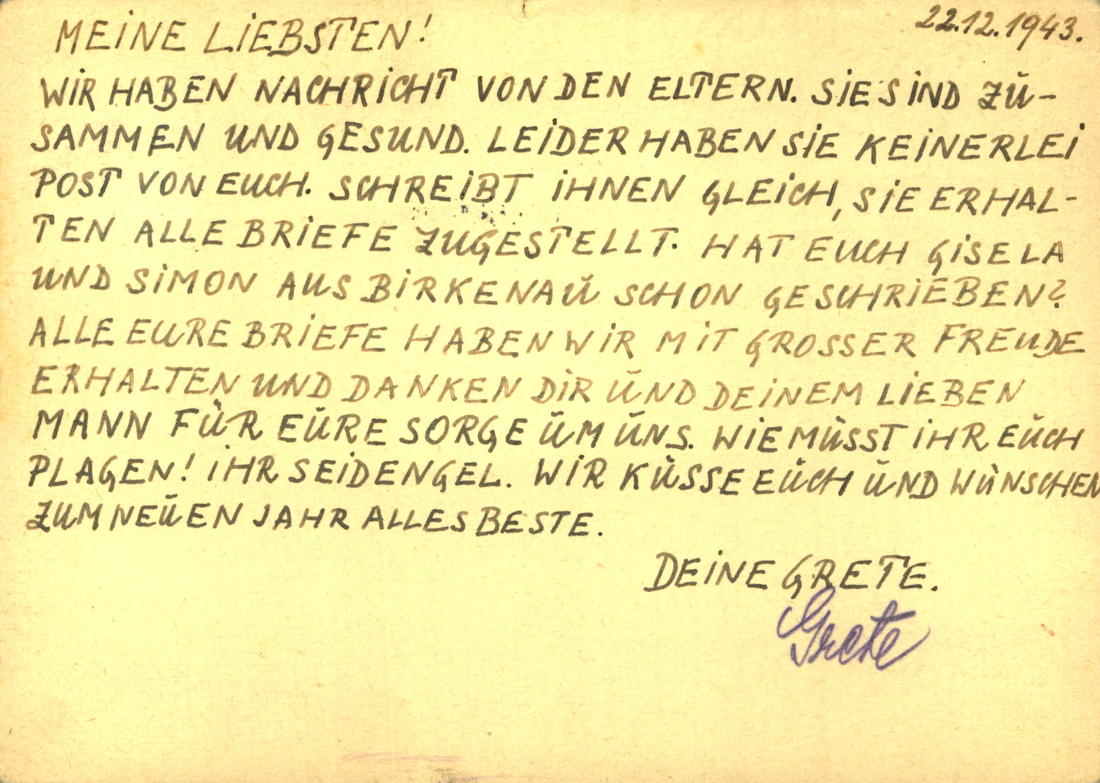 22.12.1943.
MEINE LIEBSTEN!
WIR HABEN NACHRICHT VON DEN ELTERN. SIE SIND ZU-
SAMMEN UND GESUND. LEIDER HABEN SIE KEINERLEI
POST VON EUCH. SCHREIBT IHNEN GLEICH, SIE ERHAL-
TEN ALLE BRIEFE ZUGESTELLT. HAT EUCH GISELA
UND SIMON AUS BIRKENAU SCHON GESCHRIEBEN?
ALLE EURE BRIEFE HABEN WIR MIT GROSSER FREUDE
ERHALTEN UND DANKEN DIR UND DEINEM LIEBEN
MANN FÜR EURE SORGE UM UNS. WIE MÜSST IHR EUCH
PLAGEN! IHR SEID ENGEL. WIR KÜSSE EUCH UND WÜNSCHEN
ZUM NEUEN JAHR ALLES BESTE.
DEINE GRETE.
Grete